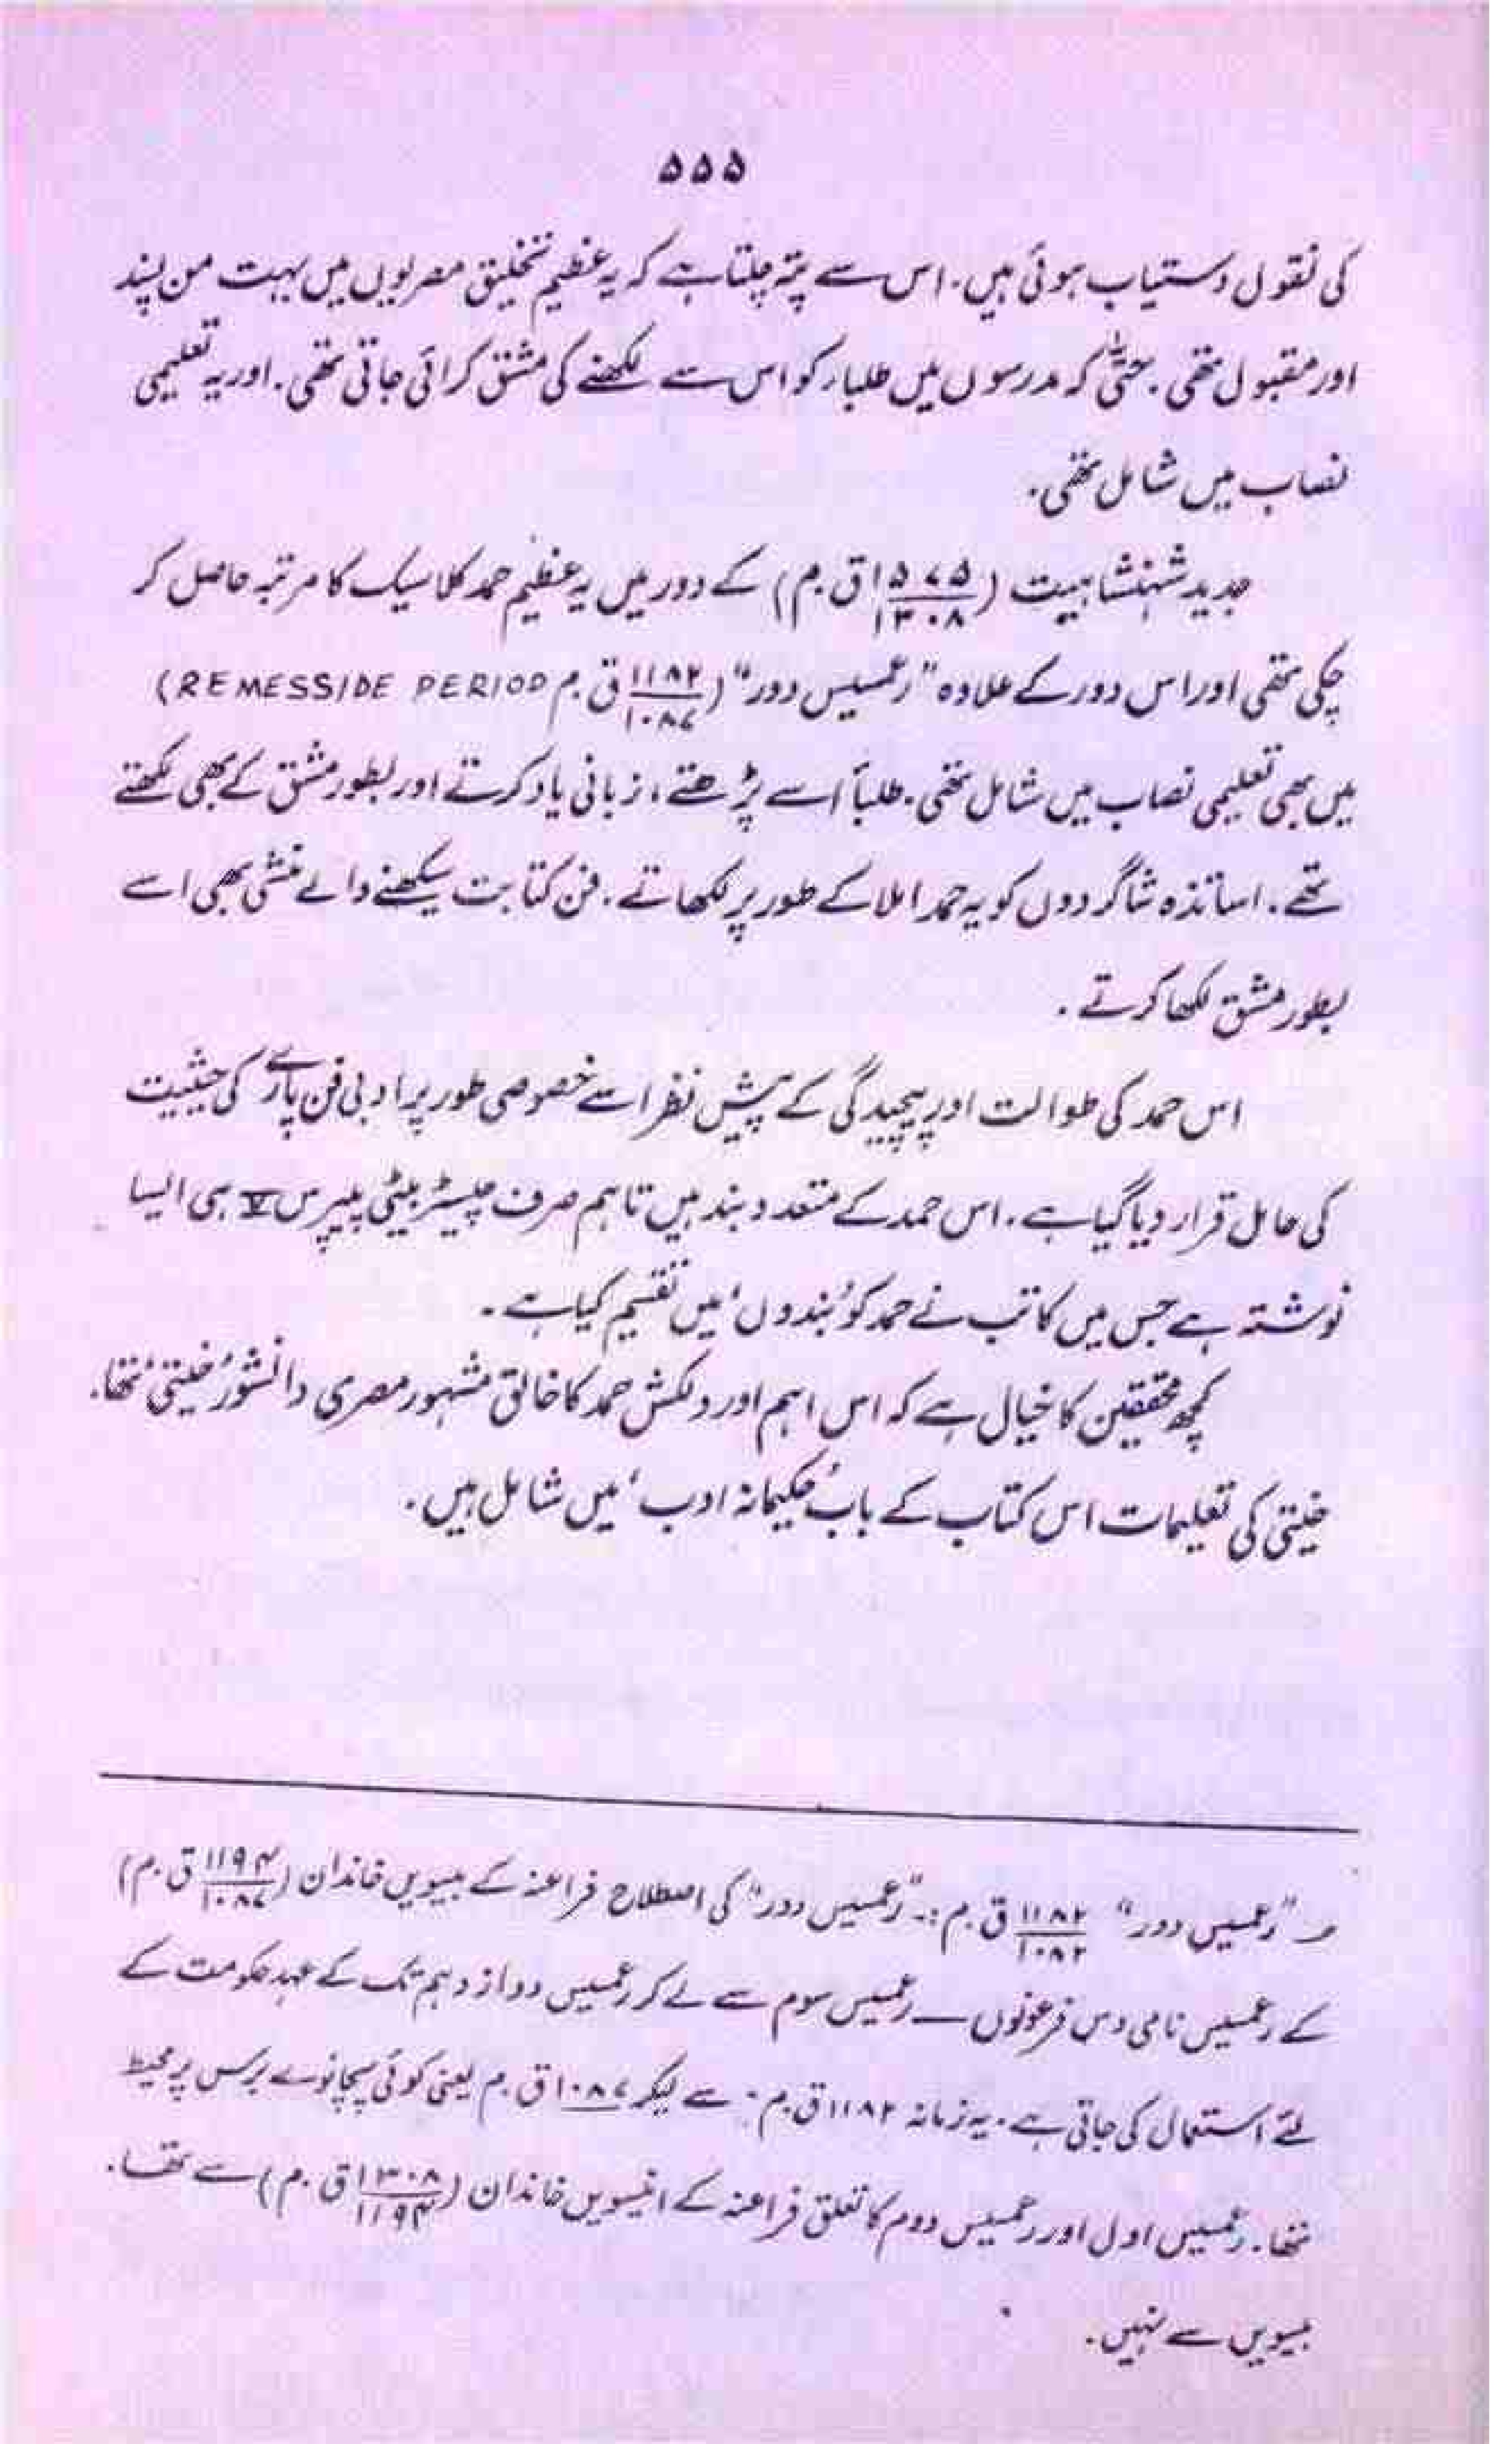 ۵۵۵
کی نقول دستیاب ہوئی ہیں۔ اس سے پتہ چلتا ہے کہ یہ عظیم تخلیق مصریوں میں بہت من پسند
اور مقبول تھی۔ حتیٰ کہ مدرسوں میں طلباء کو اس سے لکھنے کی مشق کرائی جاتی تھی۔ اور یہ تعلیمی
نصاب میں شامل تھی۔
جدید شہنشاہیت (۱۵۷۵/۱۳۰۸ ق۔م) کے دور میں یہ عظیم حمد کلاسیک کا مرتبہ حاصل کر
چکی تھی اور اس دور کے علاوہ "رعمسیس دور" (۱۱۸۲/۱۰۸۷ ق۔م REMESSIDE PERIOD)
میں بھی تعلیمی نصاب میں شامل تھی۔ طلبأ اسے پڑھتے، زبانی یاد کرتے اور بطور مشق کے بھی لکھتے
تھے۔ اساتذہ شاگردوں کو یہ حمد املا کے طور پر لکھاتے۔ فن کتابت سیکھنے والے منشی بھی اسے
بطور مشق لکھا کرتے۔
اس حمد کی طوالت اور پیچیدگی کے پیش نظر اسے خصوصی طور پر ادبی فن پارے کی حیثیت
کی حامل قرار دیا گیا ہے۔ اس حمد کے متعدد بند ہیں تاہم صرف چیسٹر بیٹی پیپرس V ہی ایسا
نوشتہ ہے جس میں کاتب نے حمد کو 'بندوں' میں تقسیم کیا ہے۔
کچھ محققین کا خیال ہے کہ اس اہم اور دلکش حمد کا خالق مشہور مصری دانشور 'خیتی' تھا۔
خیتی کی تعلیمات اس کتاب کے باب 'حکیمانہ ادب' میں شامل ہیں۔
"رعمسیس دور" ۱۱۸۲/۱۰۸۲ ق۔م :۔ "رعمسیس دور" کی اصطلاح فراعنہ کے بیسویں خاندان (۱۱۹۴/۱۰۸۷ ق۔م)
کے رعمسیس نامی دس فرعونوں ــ رعمسیس سوم سے لے کر رعمسیس دوازدہم تک کے عہد حکومت کے
لئے استعمال کی جاتی ہے۔ یہ زمانہ ۱۱۸۲ ق۔م۔ سے لیکر ۱۰۸۷ ق۔م یعنی کوئی پچانوے برس پر محیط
تھا۔ رعمسیس اول اور رعمسیس دوم کا تعلق فراعنہ کے انیسویں خاندان (۱۳۰۸/۱۱۹۴ ق۔م) سے تھا۔
بیسویں سے نہیں۔